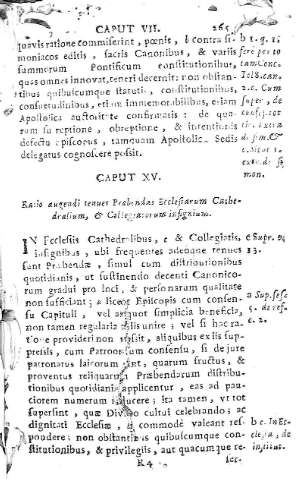 CAPUT VII. 265
quavis ratione commiserint, pœnis, b contra si-
moniacos editis, sacris Canonibus, & variis
summorum Pontificum constitutionibus,
quas omnes innovat, teneri decernit: non obstan-
tibus quibuscumque statutis, constitutionibus,
consuetudinibus, etiam immemorabilibus, etiam
Apostolica auctoritate confirmatis: de qua-
rum subreptione, obreptione, & intentionis
defectu Episcopus, tamquam Apostolicæ Sedis
delegatus cognoscere possit.
CAPUT XV.
Ratio augendi tenues Præbendas Ecclesiarum Cathe-
dralium, & Collegiatarum insignium.
IN Ecclesiis Cathedralibus, c & Collegiatis,
insignibus, ubi frequentes adeoque tenues
sunt Præbendæ, simul cum distributionibus
quotidianis, ut sustinendo decenti Canonico-
rum gradui pro loci, & personarum qualitate
non sufficiant; a liceat Episcopis cum consen-
su Capituli, vel aliquot simplicia beneficia,
non tamen regularia illis unire; vel si hac ra-
tione provideri non possit, aliquibus ex iis sup-
pressis, cum Patronorum consensu, si de jure
patronatus laicorum sint, quarum fructus, &
proventus reliquarum Præbendarum distribu-
tionibus quotidianis applicentur, eas ad pau-
ciorem numerum reducere; ita tamen, ut tot
supersint, quæ Divino cultui celebrando; ac
dignitati Ecclesiæ, b commode valeant res-
pondere; non obstantibus quibuscumque con-
stitutionibus, & privilegiis, aut quacumque re-
K 4
ser-
b 1. q. 1.
fere per to
tam Conc.
c Supr. 24
13.
a Sup. sess.
5. de ref.
c. 2.
b c. In Ec-